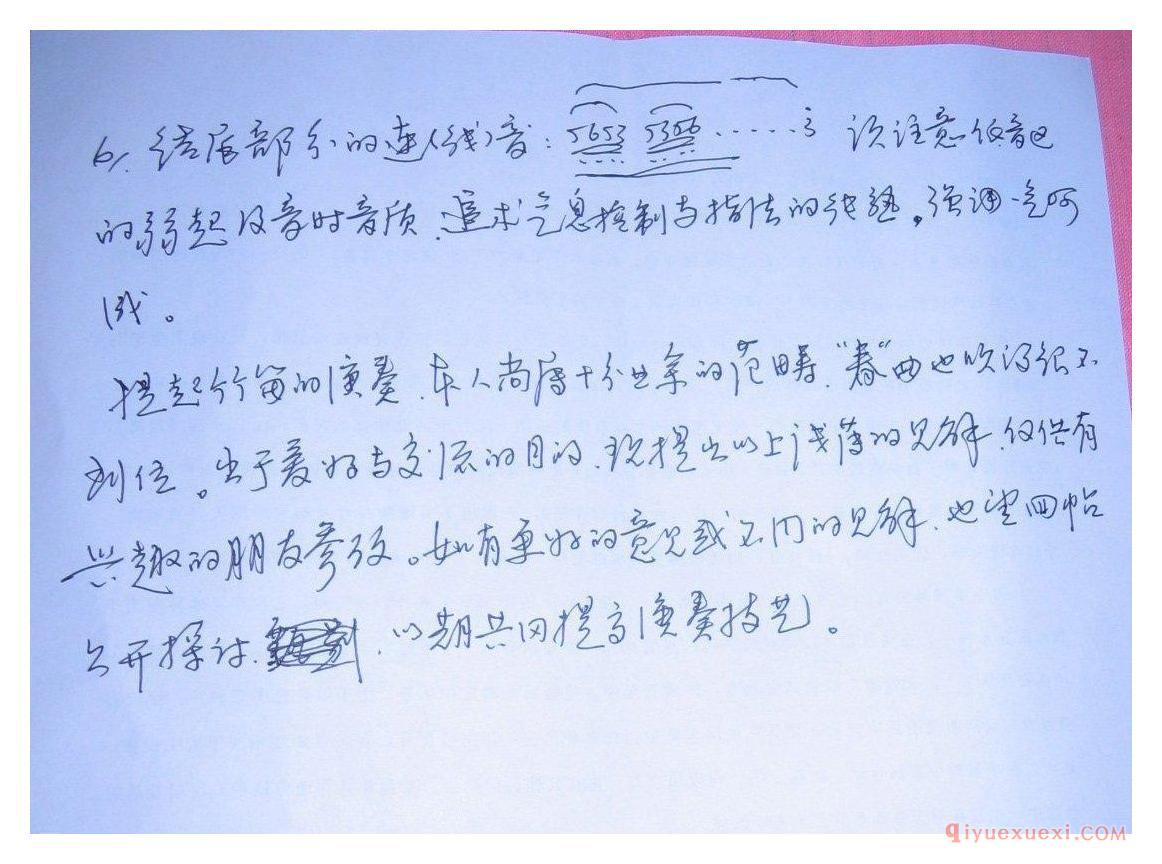 6、结尾部分的连(线)音: 5653 5356 ......3 须注意低音区
的弱起及音时音质、追求气息控制与指法的统一。强调一气呵
成。
提起竹笛的演奏、本人尚属十分业余的范畴、"春"曲也吹得很不
到位。出于爱好与交流的目的、现提出以上浅薄的见解、仅供有
兴趣的朋友参考。如有更好的意见或不同的见解、也望回帖
公开探讨、以期共同提高演奏技艺。
qiyuexuexi.COM